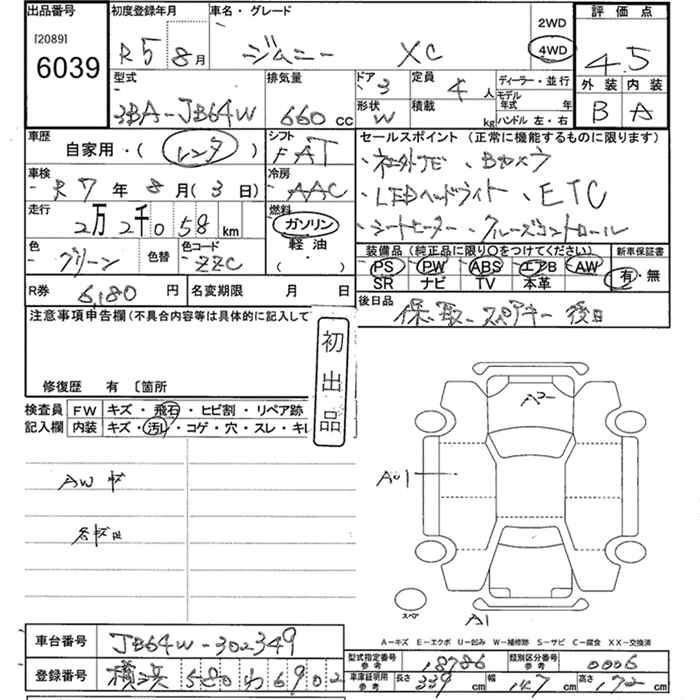 出品番号 初度登録年月 車名・グレード 2WD 評価点
[2089] R5 8月 ジムニー XC 4WD 4.5
6039 型式 排気量 ドア 3 定員 4人 ディーラー・並行 外装 内装
3BA-JB64W 660 cc 形状 W 積載 kg モデル年式 年 ハンドル 左・右 B A
車歴 自家用・(レンタ) シフト FAT セールスポイント(正常に機能するものに限ります)
車検 R7年8月(3日) 冷房 AAC ・社外ナビ、Bカメラ
走行 2万2千058km 燃料 ガソリン ・LEDヘッドライト、ETC
軽油 ・シートヒーター、クルーズコントロール
色 グリーン 色替 色コード ZZC ( ) 装備品(純正品に限り○をつけてください) 新車保証書
PS PW ABS エアB AW 有・無
SR ナビ TV 本革
R券 6,180円 名変期限 月 日 後日品
注意事項申告欄(不具合内容等は具体的に記入して 保、取、スペアキー 後日
初出品
修復歴 有 〔箇所
検査員 FW キズ・飛石・ヒビ割・リペア跡
記入欄 内装 キズ・汚レ・コゲ・穴・スレ・キレ
A2
AWキズ A01
各キズ凹
スペア A1
A-キズ E-エクボ U-凹み W-補修跡 S-サビ C-腐食 XX-交換済
車台番号 JB64W-302349
登録番号 横浜 580 わ 6902 型式指定番号 参考 18786 類別区分番号 参考 0006
車庫証明用 参考 長さ 339cm 幅 147cm 高さ 172cm